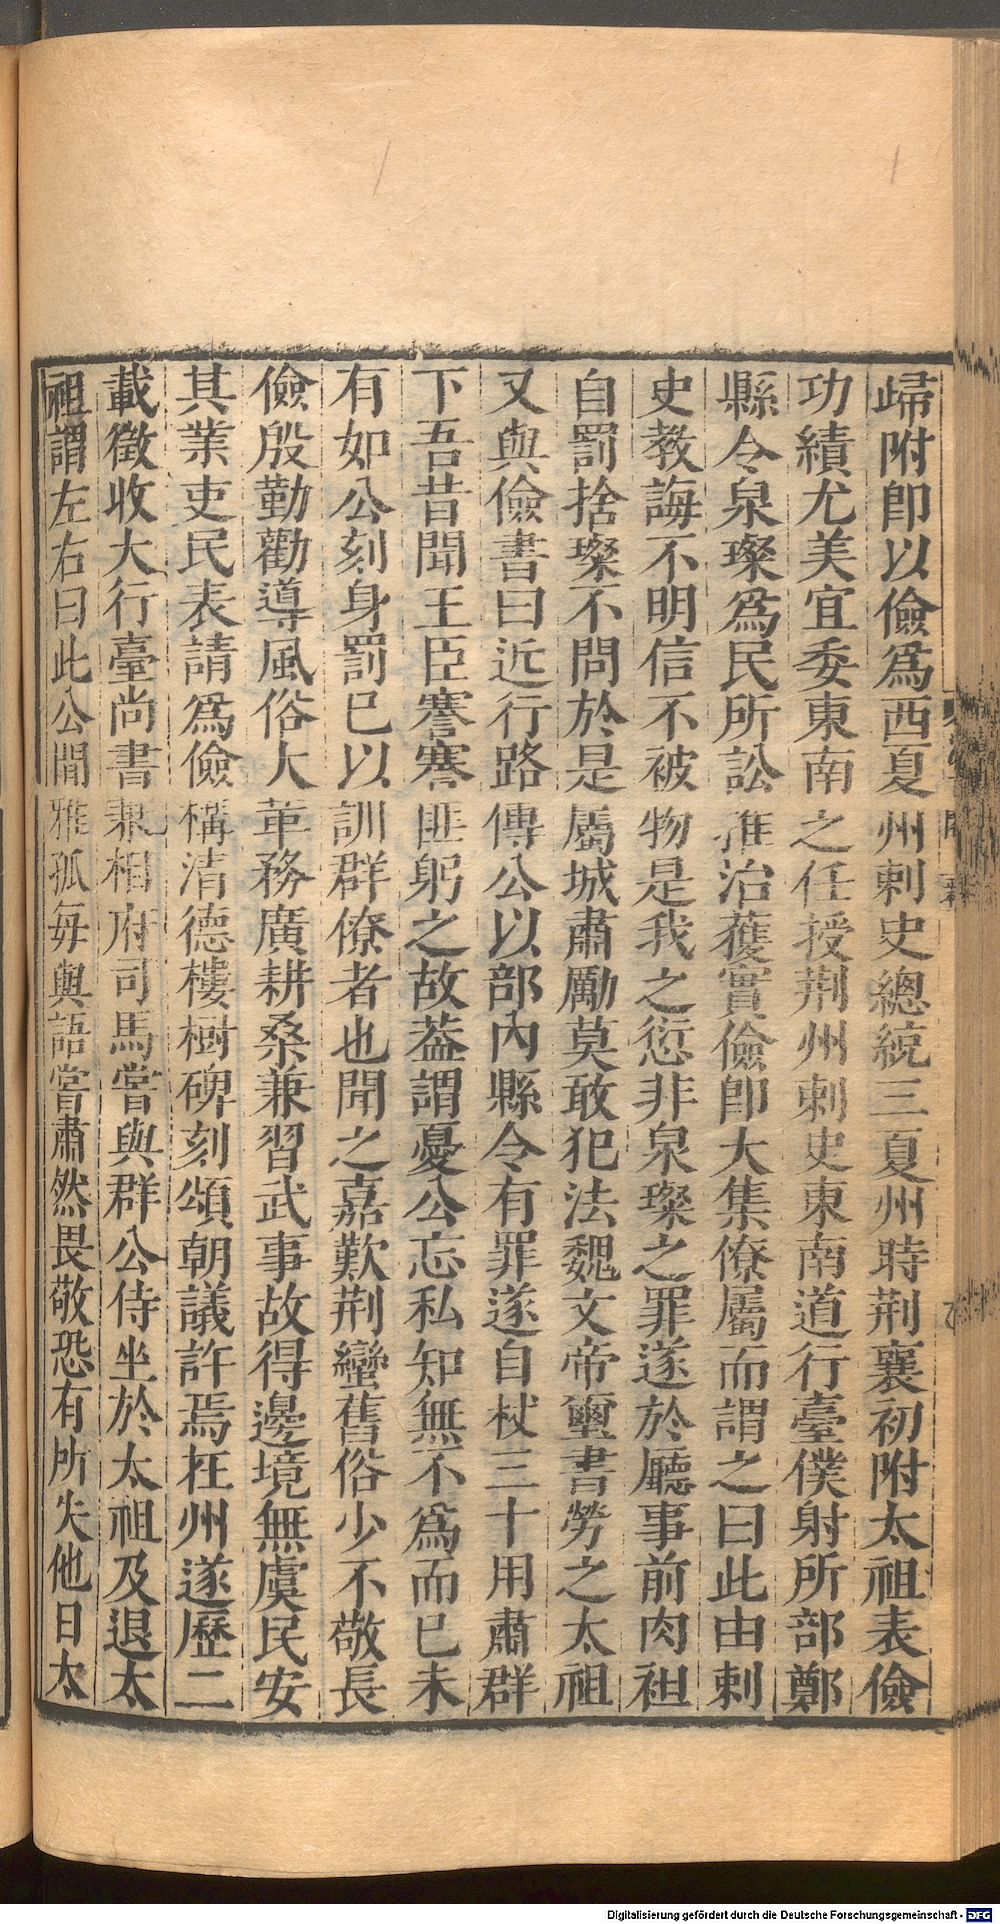 歸附卽以儉爲西夏州刺史總統三夏州時荆襄初附太祖表儉
功績尤美宜委東南之任授荆州刺史東南道行臺僕射所部鄭
縣令泉璨爲民所訟推治獲實儉卽大集僚屬而謂之曰此由刺
史教誨不明信不被物是我之愆非泉璨之罪遂於廳事前肉袒
自罰捨璨不問於是屬城肅勵莫敢犯法魏文帝璽書勞之太祖
又與儉書曰近行路傳公以部內縣令有罪遂自杖三十用肅群
下吾昔聞王臣謇謇匪躬之故葢謂憂公忘私知無不爲而已未
有如公刻身罰已以訓群僚者也聞之嘉歎荆蠻舊俗少不敬長
儉殷勤勸導風俗大革務廣耕桑兼習武事故得邊境無虞民安
其業吏民表請爲儉構清德樓樹碑刻頌朝議許焉在州遂歷二
載徵收大行臺尚書兼相府司馬嘗與群公侍坐於太祖及退太
祖謂左右曰此公閒雅孤每與語嘗肅然畏敬恐有所失他日太
Digitalisierung gefördert durch die Deutsche Forschungsgemeinschaft - DFG